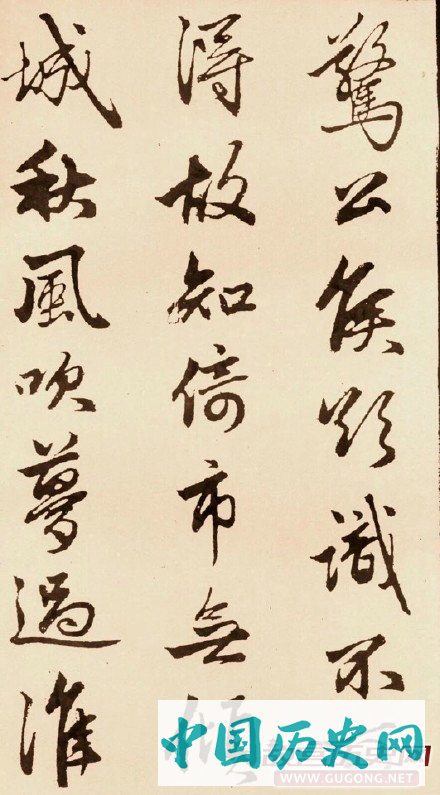 驚公侯欲識不
得故知倚市無
城秋風吹夢過淮
中国历史网
WWW.GUGONG.NET